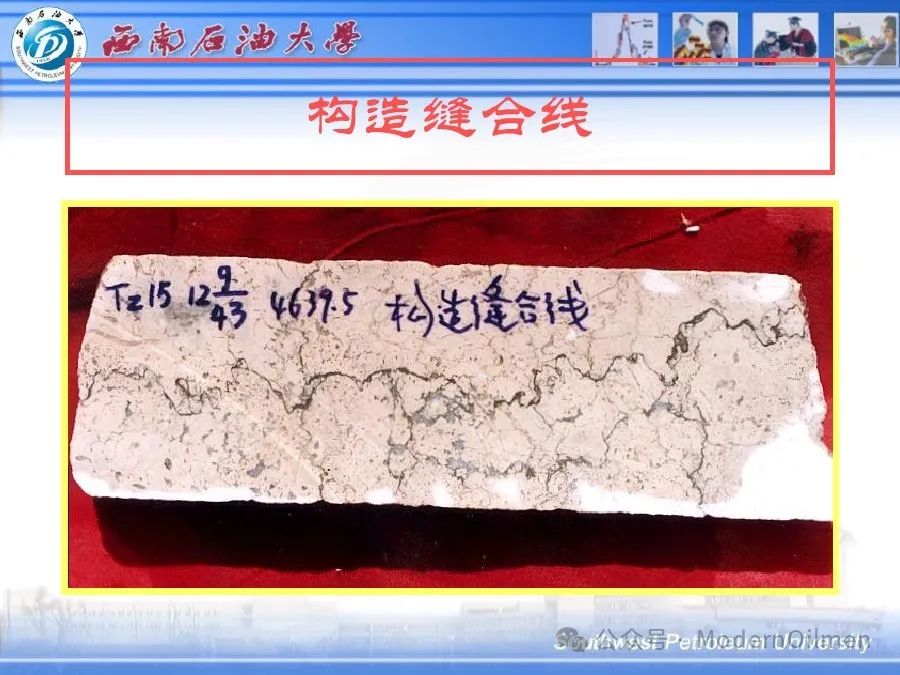 西南石油大学
构造缝合线
TZ15 12 9/43 4639.5 构造缝合线
Southwest Petroleum University
公众号 ModernOilmen